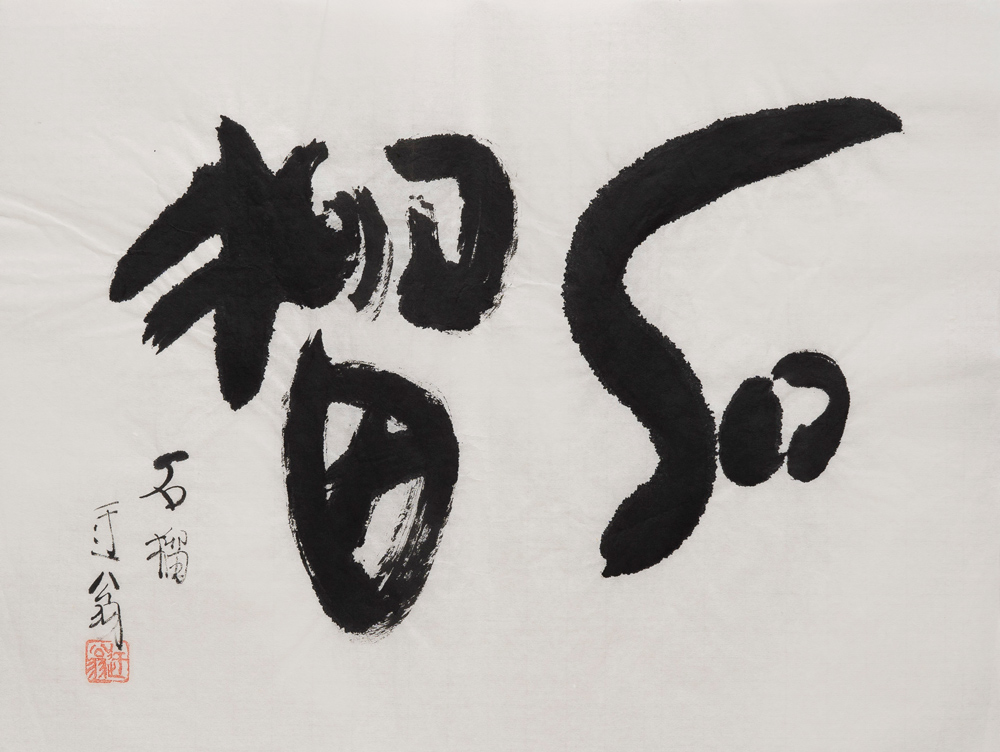 石榴
石榴
迂翁